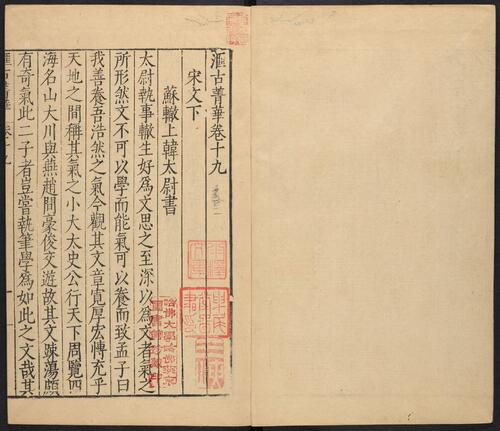 滙古菁華卷十九
宋文下
蘇轍上韓太尉書
太尉執事轍生好爲文思之至深以爲文者氣之
所形然文不可以學而能氣可以養而致孟子曰
我善養吾浩然之氣今觀其文章寬厚宏博充乎
天地之間稱其氣之小大太史公行天下周覽四
海名山大川與燕趙間豪俊交遊故其文疎蕩頗
有奇氣此二子者豈嘗執筆學爲如此之文哉其
哈佛大學哈佛燕京
圖書館珍藏印